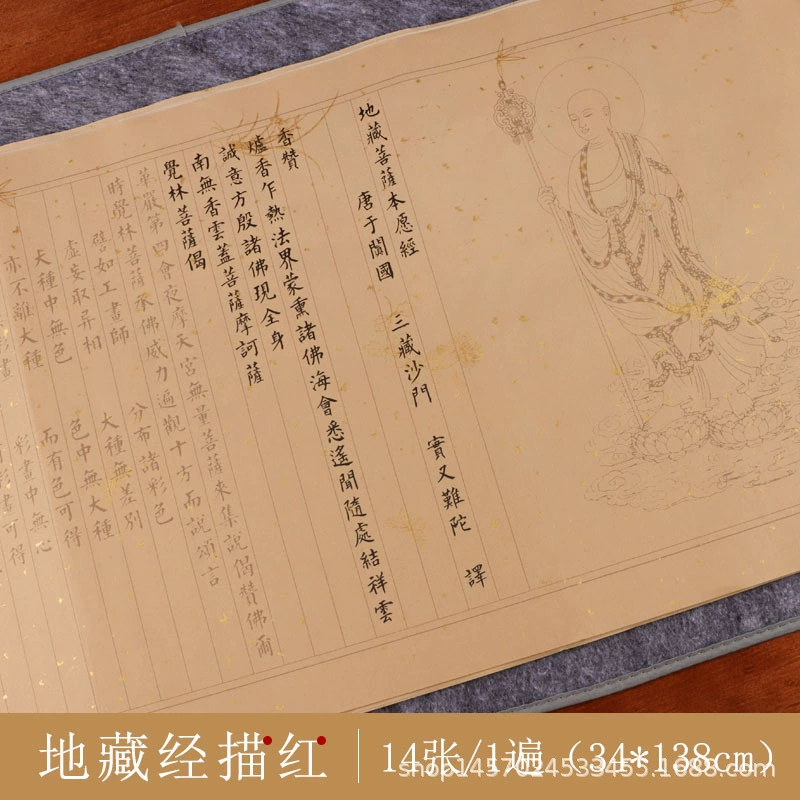 地藏菩薩本愿經
唐于闐國 三藏沙門 實叉難陀 譯
香贊
爐香乍熱法界蒙熏諸佛海會悉遙聞隨處結祥雲
誠意方殷諸佛現全身
南無香雲蓋菩薩摩訶薩
覺林菩薩偈
華嚴第四會夜摩天宮無量菩薩來集說偈贊佛爾
時覺林菩薩承佛威力遍觀十方而說頌言
譬如工畫師 分布諸彩色
虛妄取异相 大種無差別
大種中無色 色中無大種
亦不離大種 而有色可得
彩畫中無心
彩畫可得
地藏经描红 14张/1遍（34*138cm）
shop1457024539455.1688.com